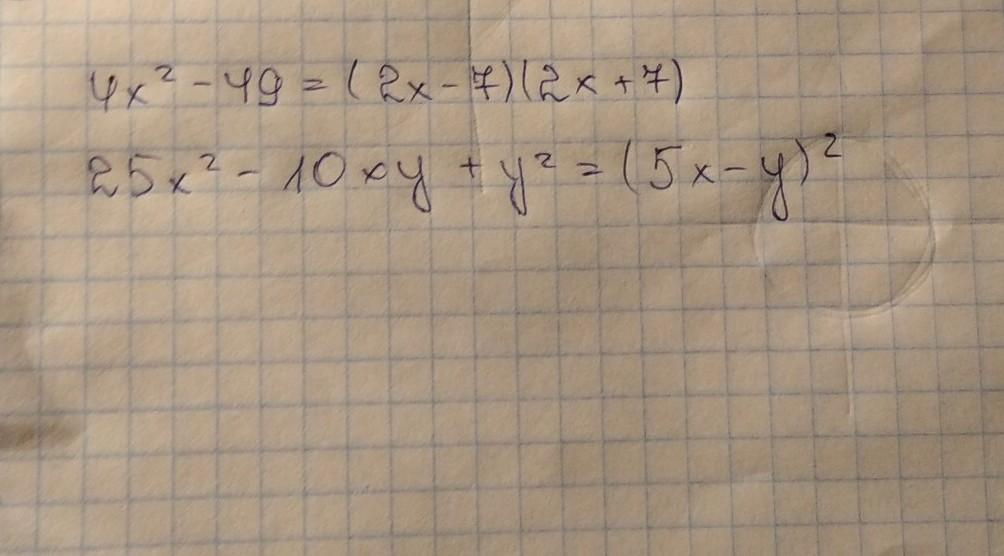 4x² - 49 = (2x - 7)(2x + 7)
25x² - 10xy + y² = (5x - y)²